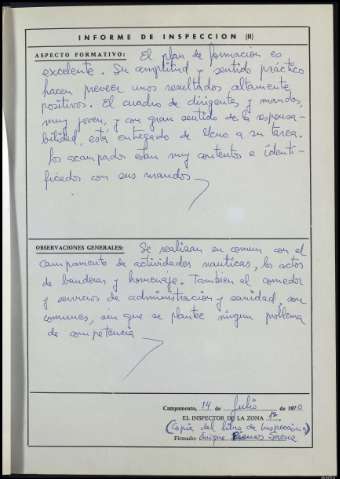 INFORME DE INSPECCION (R)
ASPECTO FORMATIVO: El plan de formación es
excelente. Su amplitud y sentido práctico
hacen preveer unos resultados altamente
positivos. El cuadro de dirigentes y mandos,
muy joven, y con gran sentido de la responsa-
bilidad, está entregado de lleno a su tarea.
Los acampados están muy contentos e identi-
ficados con sus mandos
OBSERVACIONES GENERALES: Se realizan en común con el
campamento de actividades nauticas, los actos
de banderas y homenaje. Tambien el comedor
y servicios de administracion y sanidad, son
comunes, sin que se plantee ningun problema
de competencia
Campamento, 14 de Julio de 1970
EL INSPECTOR DE LA ZONA
(Copia del libro de Inspección)
Firmado: Enrique